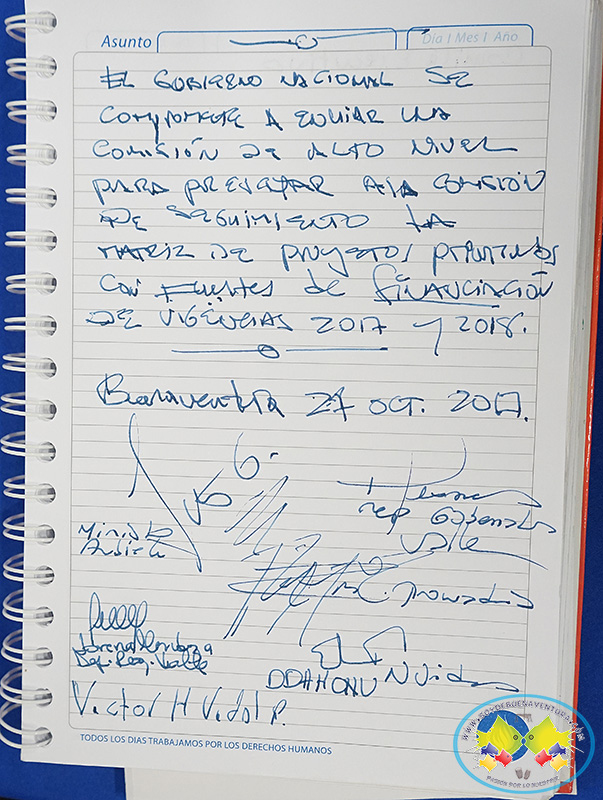 Asunto
Día | Mes | Año
EL GOBIERNO NACIONAL SE
COMPROMETE A ENVIAR UNA
COMISIÓN DE ALTO NIVEL
PARA PRESENTAR A LA COMISIÓN
DE SEGUIMIENTO LA
MATRIZ DE PROYECTOS
CON FUENTES de FINANCIACIÓN
DE VIGENCIAS 2017 y 2018.
Buenaventura 27 OCT. 2017.
rep Gobernador
Valle
Ministro
Lorena
Def. Reg. Valle
DDHH ONU
Victor H Vidal P.
TODOS LOS DIAS TRABAJAMOS POR LOS DERECHOS HUMANOS
WWW.SOYDEBUENAVENTURA.COM
PASIÓN POR LO NUESTRO